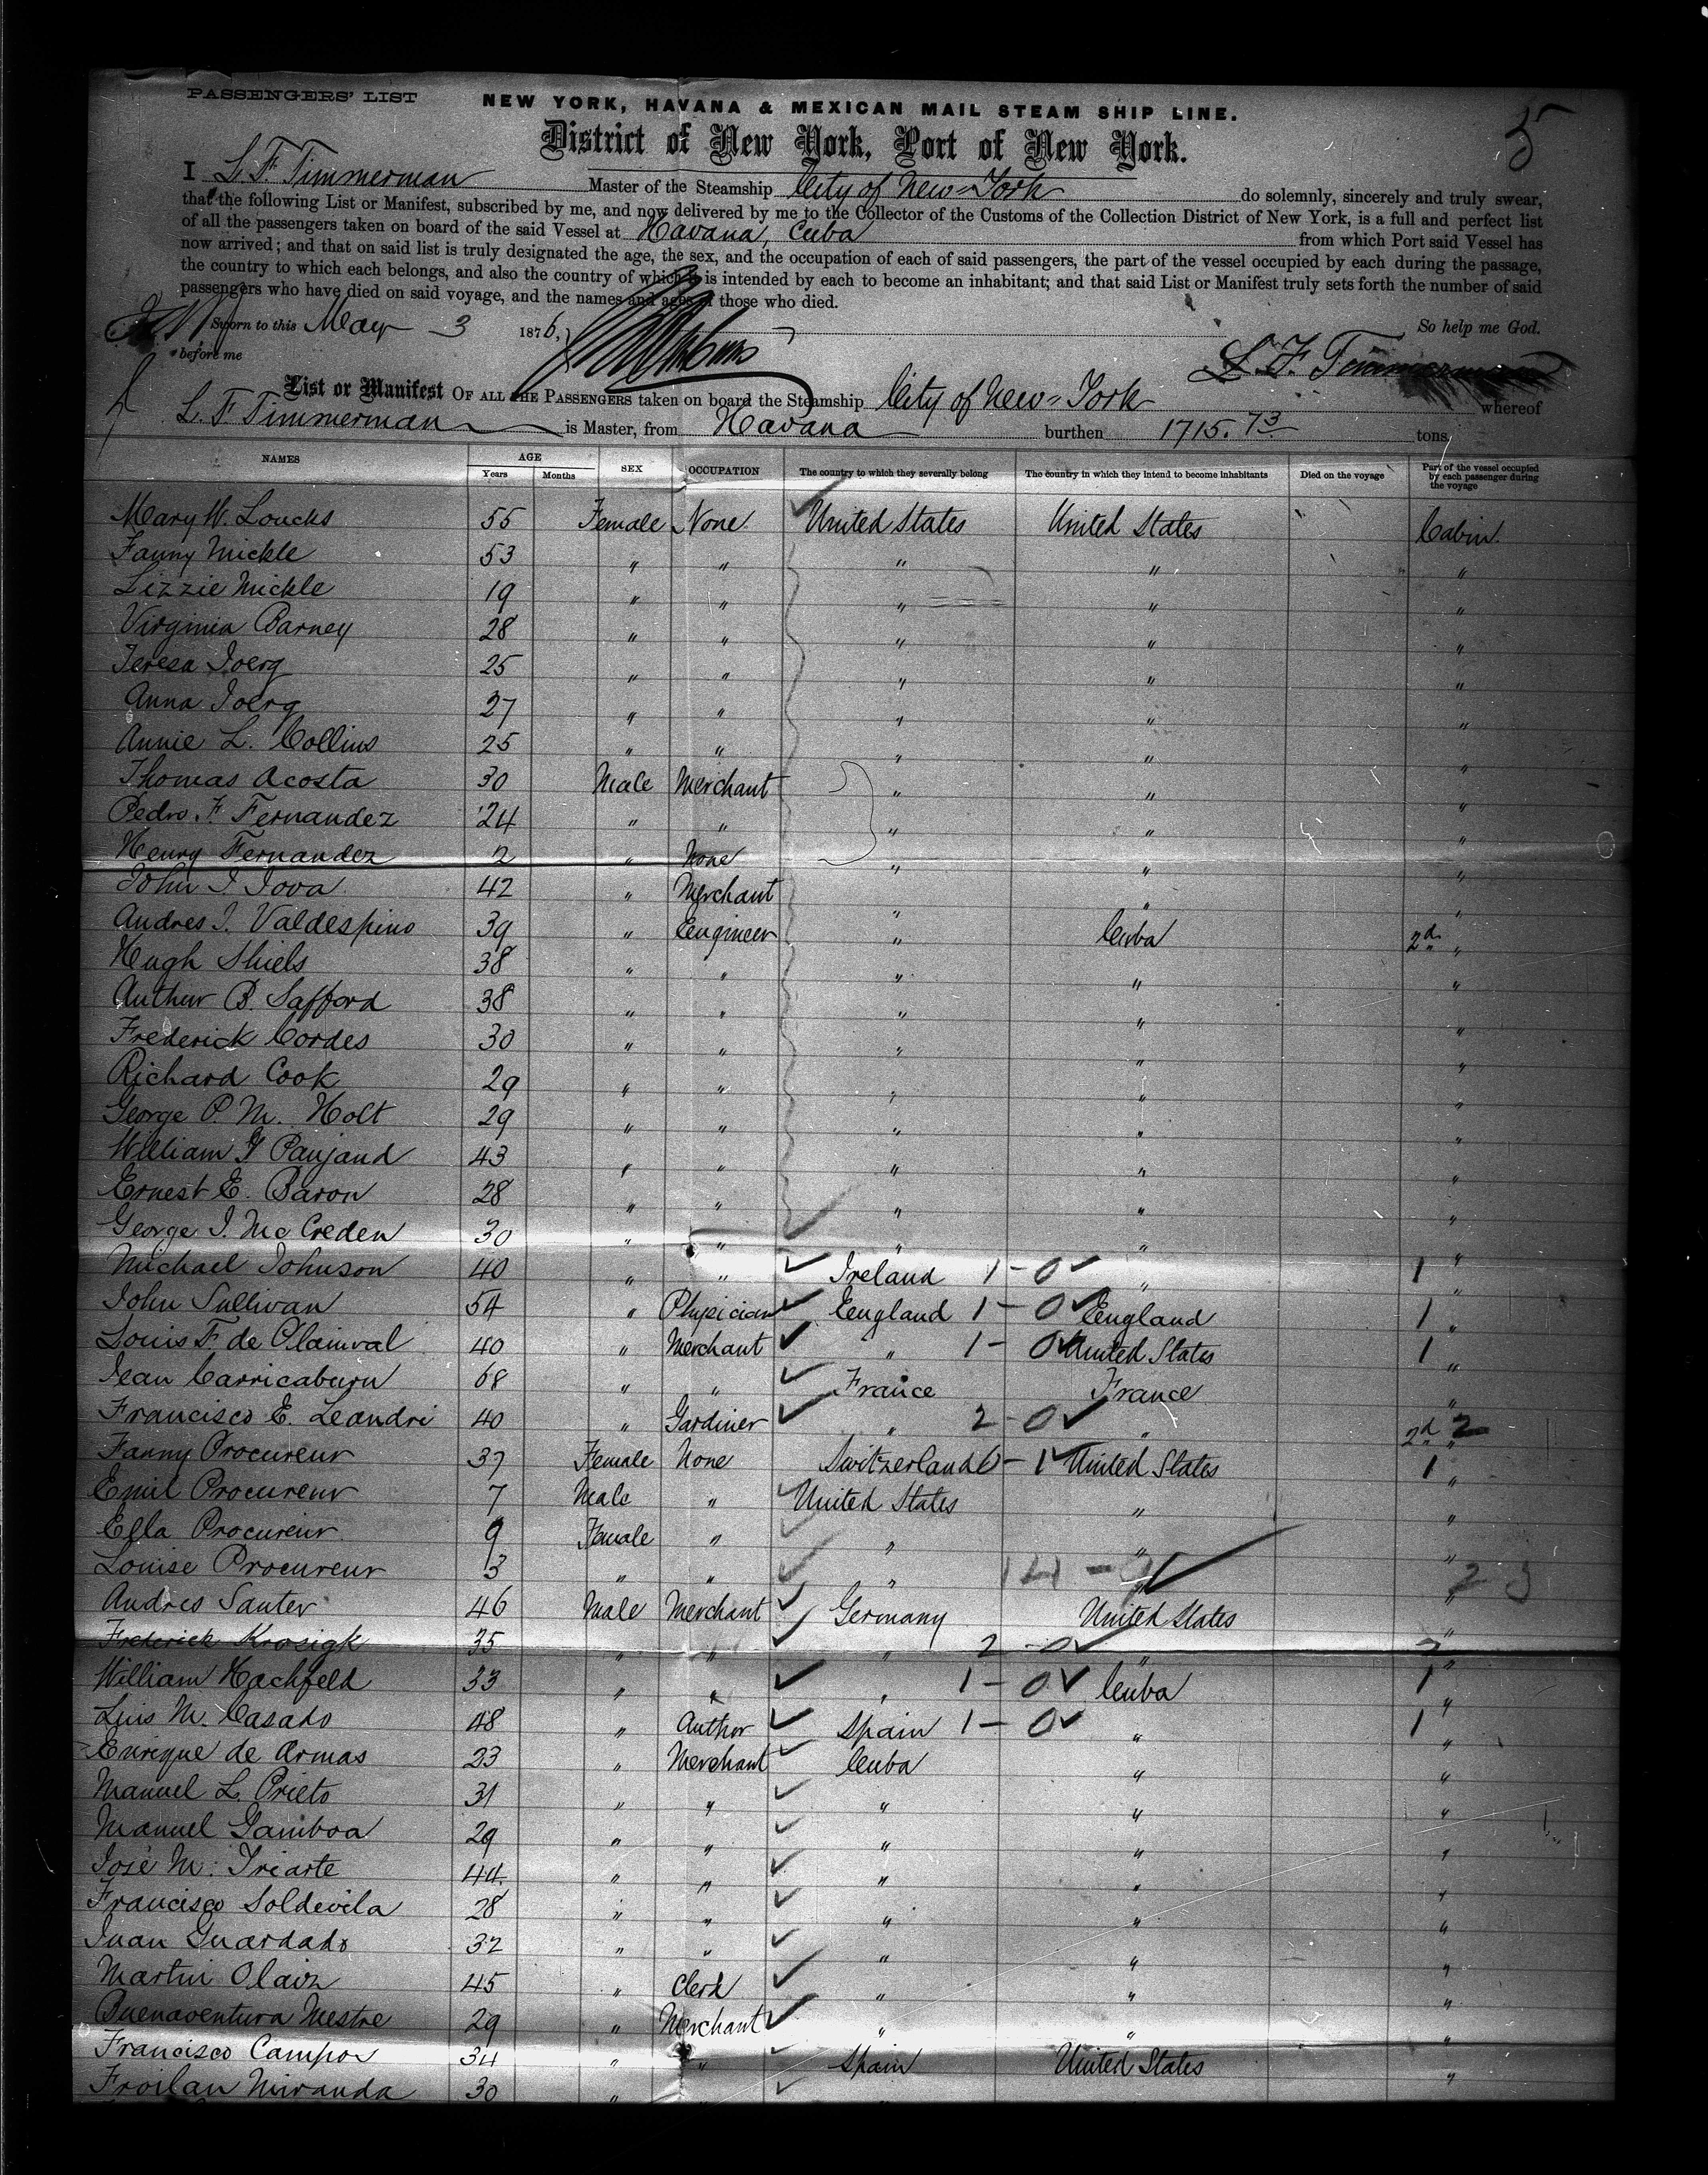 PASSENGERS' LIST
NEW YORK, HAVANA & MEXICAN MAIL STEAM SHIP LINE.
5
District of New York, Port of New York.
I L. F. Timmerman Master of the Steamship City of New=York do solemnly, sincerely and truly swear,
that the following List or Manifest, subscribed by me, and now delivered by me to the Collector of the Customs of the Collection District of New York, is a full and perfect list
of all the passengers taken on board of the said Vessel at Havana, Cuba from which Port said Vessel has
now arrived; and that on said list is truly designated the age, the sex, and the occupation of each of said passengers, the part of the vessel occupied by each during the passage,
the country to which each belongs, and also the country of which it is intended by each to become an inhabitant; and that said List or Manifest truly sets forth the number of said
passengers who have died on said voyage, and the names and ages of those who died.
Sworn to this May 3 1876, So help me God.
before me L. F. Timmerman
List or Manifest OF ALL THE PASSENGERS taken on board the Steamship City of New=York whereof
L. F Timmerman is Master, from Havana burthen 1715.73 tons
NAMES AGE Years Months SEX OCCUPATION The country to which they severally belong The country in which they intend to become inhabitants Died on the voyage Part of the vessel occupied by each passenger during the voyage
Mary W. Loucks 55 Female None United States United States Cabin.
Fanny Mickle 53 " " " " "
Lizzie Mickle 19 " " " " "
Virginia Barney 28 " " " " "
Teresa Joerg 25 " " " " "
Anna Joerg 27 " " " " "
Annie L. Collins 25 " " " " "
Thomas Acosta 30 Male Merchant " " "
Pedro. F. Fernandez 24 " " " " "
Henry Fernandez 2 " None " " "
John J. Jova 42 " Merchant " " "
Andres J. Valdespino 39 " Engineer " Cuba 2d "
Hugh Shiels 38 " " " " "
Authur B. Safford 38 " " " " "
Frederick Cordes 30 " " " " "
Richard Cook 29 " " " " "
George P. M. Holt 29 " " " " "
William 43 " " " " "
Ernest E. Baron 28 " " " " "
George J. Mc Creden 30 " " " " "
Michael Johnson 40 " " Ireland 1 - 0 " 1 "
John Sullivan 54 " Physician England 1 - 0 England 1 "
Louis F. de Plainval 40 " Merchant " 1 - 0 United States 1 "
Jean Carricaburu 68 " " France France "
Francisco E. Leandri 40 " Gardiner " 2 - 0 " 2d 2 "
Fanny Procureur 37 Female None Switzerland 0 - 1 United States 1 "
Emil Procureur 7 Male " United States " "
Ella Procureur 9 Female " " " "
Louise Procureur 3 " " " " "
Andres Santer 46 Male Merchant Germany United States "
Frederick Krosigk 35 " " " 2 - 0 " 2 "
William Hachfeld 33 " " " 1 - 0 Cuba 1 "
Luis M. Casado 48 " Author Spain 1 - 0 " 1 "
Enrique de Armas 23 " Merchant Cuba " "
Manuel L. Prieto 31 " " " " "
Manuel Gamboa 29 " " " " "
José M. Triarte 44 " " " " "
Francisco Soldevila 28 " " " " "
Juan Guardado 32 " " " " "
Martin Olaiz 45 " Clerk " " "
Buenaventura Mestre 29 " Merchant " " "
Francisco Campos 34 " " Spain United States "
Froilan Miranda 30 "